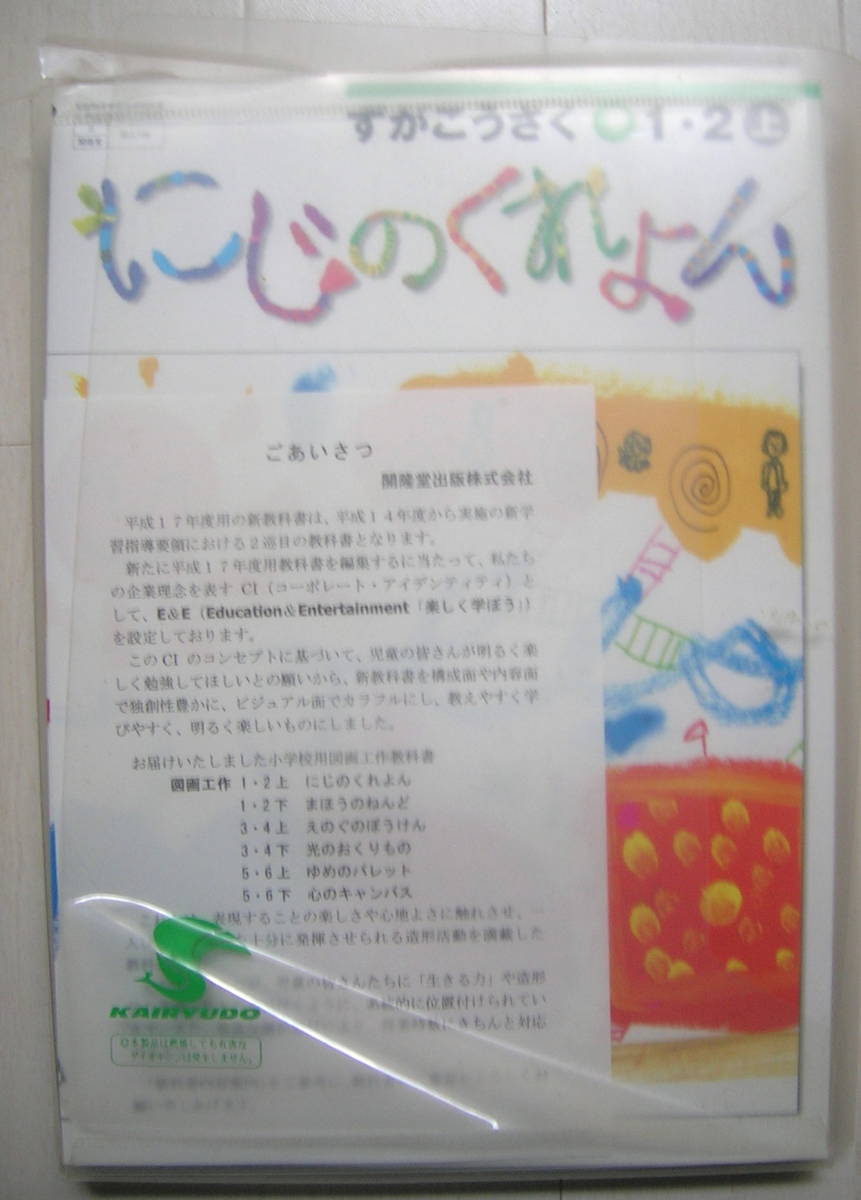 ずがこうさく 1・2 上
にじのくれよん
ごあいさつ
開隆堂出版株式会社
平成17年度用の新教科書は、平成14年度から実施の新学
習指導要領における2巡目の教科書となります。
新たに平成17年度用教科書を編集するに当たって、私たち
の企業理念を表す CI（コーポレート・アイデンティティ）と
して、E&E（Education&Entertainment「楽しく学ぼう」）
を設定しております。
このCI のコンセプトに基づいて、児童の皆さんが明るく楽
しく勉強してほしいとの願いから、新教科書を構成面や内容面
で独創性豊かに、ビジュアル面でカラフルにし、教えやすく学
びやすく、明るく楽しいものにしました。
お届けいたしました小学校用図画工作教科書
図画工作 1・2上 にじのくれよん
1・2下 まほうのねんど
3・4上 えのぐのぼうけん
3・4下 光のおくりもの
5・6上 ゆめのパレット
5・6下 心のキャンバス
表現することの楽しさや心地よさに触れさせ、一
十分に発揮させられる造形活動を満載した
児童の皆さんたちに「生きる力」や造形
系統的に位置付けられてい
授業時数にきちんと対応
KAIRYUDO
本製品は燃焼しても有害な
ダイオキシンは発生しません。